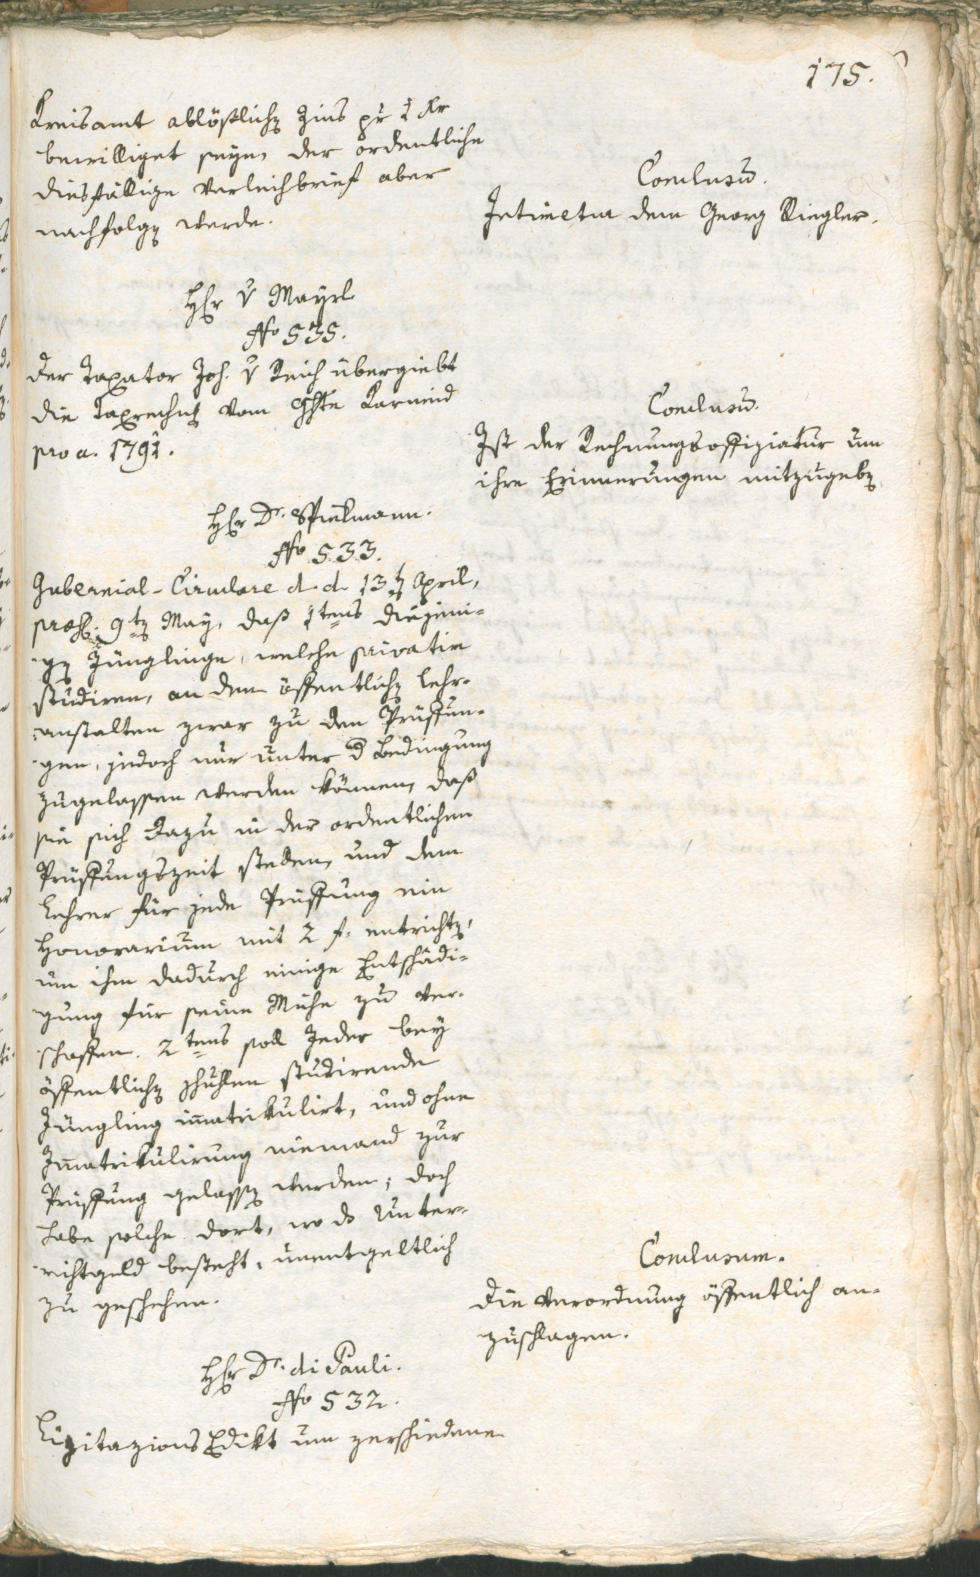 175.
Kreisamt ablößlichen Zins pr 1 Kr
bewilliget seye, der ordentliche
diesfällige Verleichbrief aber
nachfolgen werde.
Conclusū.
Intimetur dem Georg Riegler.
Hr v Mayrl
No 535.
Der Taxator Joh. v Reich übergiebt
die Taxrechnung vom Ghte Karneid
pro a. 1791.
Conclusū.
Ist der Rechnungsoffiziatur um
ihre Erinnerungen mitzugeben
Hr Dr. Spielmann.
No 533.
Gubernial-Circulare d. d. 13ten April,
præs. 9ten May, daß 1tens diejeni-
gen Jünglinge, welche privatim
studiren, an den öffentlichen Lehr-
anstalten zwar zu den Prüfun-
gen, jedoch nur unter d Bedingung
zugelassen werden können, daß
sie sich dazu in der ordentlichen
Prüffungszeit stellen, und dem
Lehrer für jede Prüffung ein
Honorarium mit 2 f. entrichten,
um ihm dadurch einige Entschädi-
gung für seine Mühe zu ver-
schaffen. 2tens soll Jeder bey
öffentlichen Schullen studirende
Jüngling im̄atrikulirt, und ohne
Im̄atrikulirung niemand zur
Prüffung gelassen werden; doch
habe solche dort, wo ds Unter-
richtgeld besteht, unentgeltlich
zu geschehen.
Conclusum.
Die Verordnung öffentlich an-
zuschlagen.
Hr Dr. di Pauli.
No 532.
Lizitazions Edikt um zerschiedene